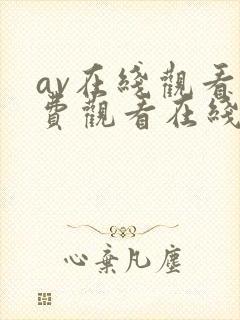 av在綫觀看
費觀看在綫
心棄凡塵